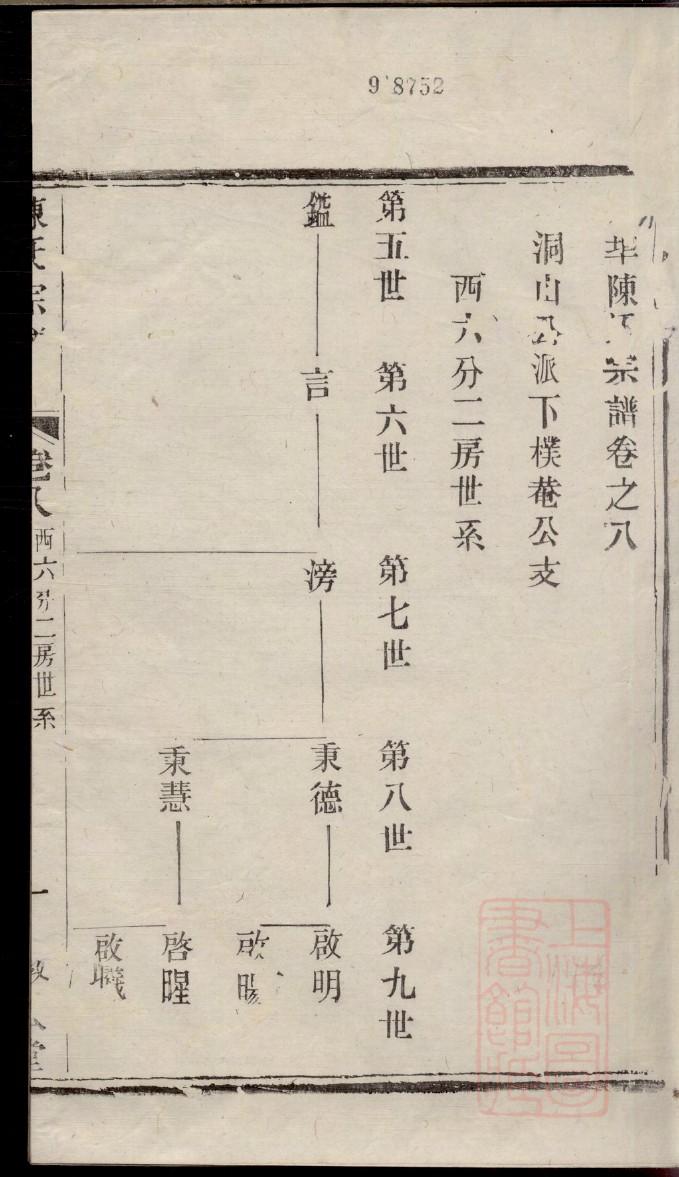 98752
陳氏宗譜卷之八
洞山公派下樸菴公支
西六分二房世系
第五世 第六世 第七世 第八世 第九世
鑑 言 滂 秉德 啟明
啟暘
秉慧 啓暒
啟職
陳氏宗
卷八 西六分二房世系 一
堂
上海圖書館藏